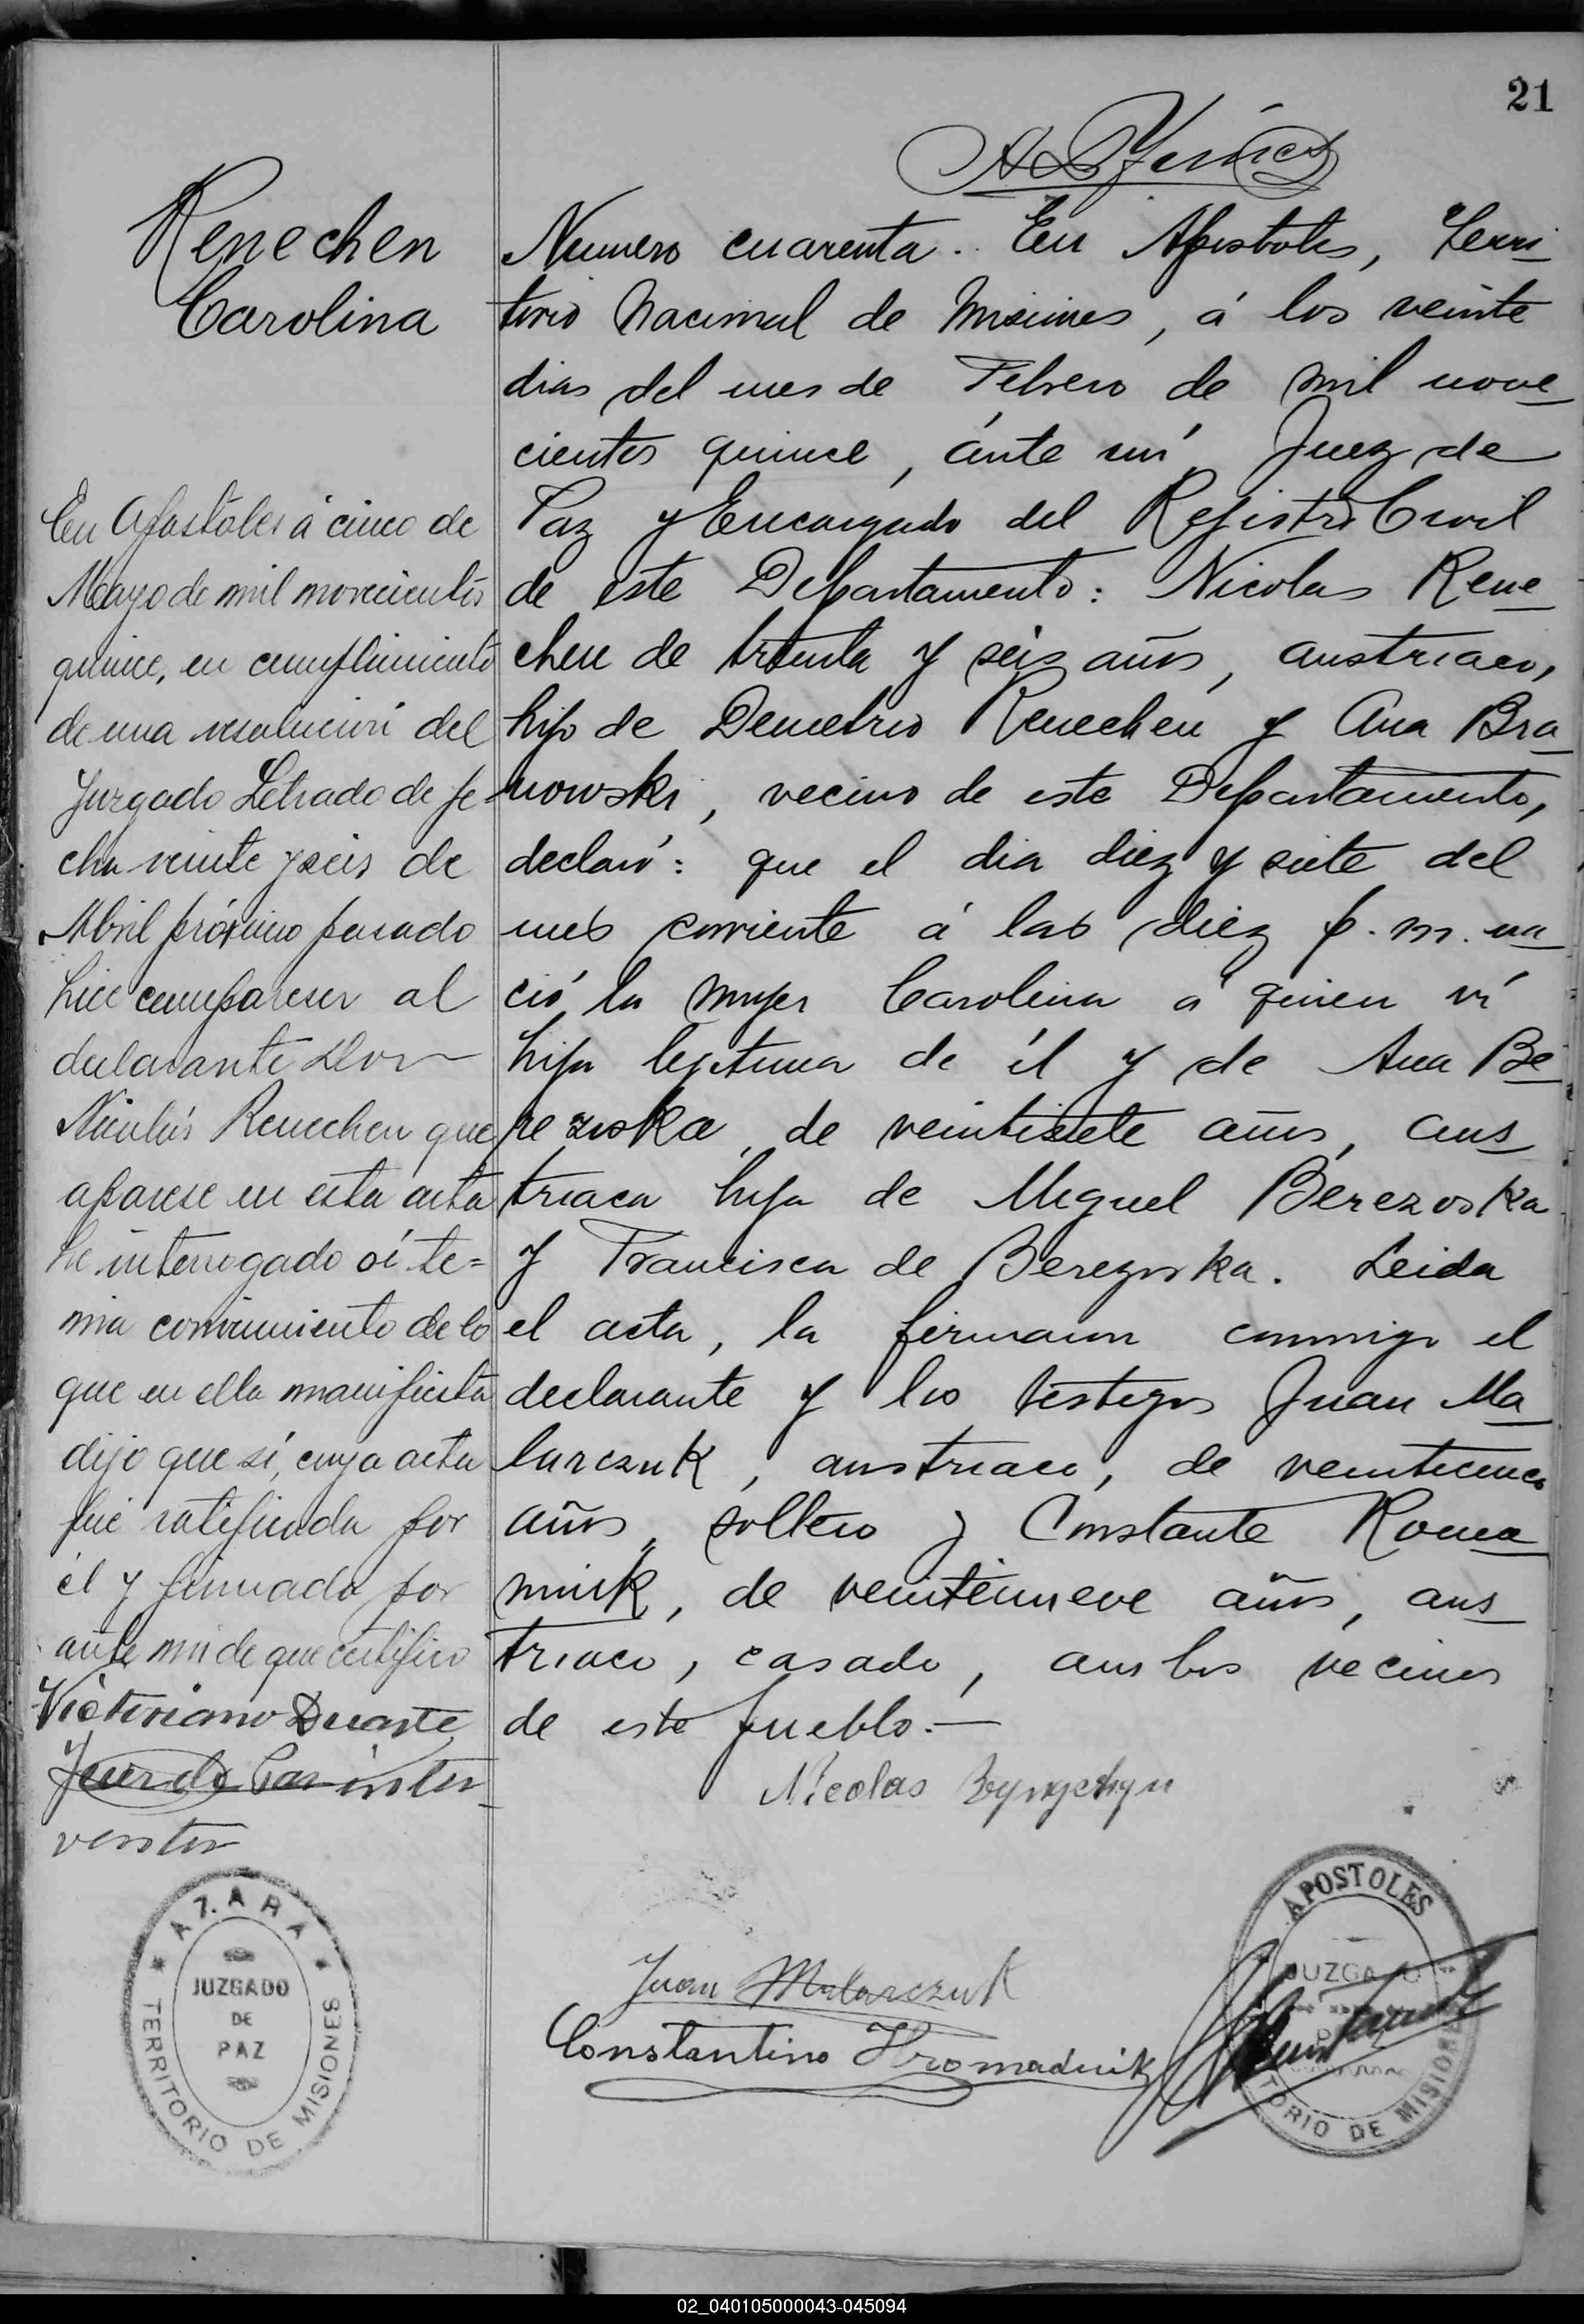 21
Renechen
Carolina
Numero cuarenta. En Apostoles, Terri_
torio Nacional de Misiones, á los veinte
dias del mes de Febrero de mil nove_
cientos quince, ánte mi Juez de
Paz y Encargado del Rejistro Civil
de este Departamento: Nicolas Rene_
chen de treinta y seis años, austriaco,
hijo de Demetrio Renechen y Ana Bra_
nowski, vecino de este Departamento,
declaró: que el dia diez y siete del
mes corriente á las diez p.m. na_
ció la mujer Carolina á quien ví
hija lejitima de él y de Ana Be_
rezoska, de veintisiete años, aus_
triaca hija de Miguel Berezoska
y Francisca de Berezoska. Leida
el acta, la firmaron conmigo el
declarante y los testigos Juan Ma_
larczuk, austriaco, de veinticinco
años, soltero y Constante Roma_
niuk, de veintinueve años, aus_
triaco, casado, ambos vecinos
de este pueblo.—
En Apostoles á cinco de
Mayo de mil novecientos
quince, en cumplimiento
de una resolucion del
Juzgado Letrado de fe-
cha veinte y seis de
Abril próximo pasado
hice compareser al
declarante Don
Nicolás Renechen que
aparese en esta acta
he interrogado si te=
nia conocimiento de lo
que en ella manifiesta
dijo que sí, cuya acta
fué ratificada por
él y firmada por
ante mi de que certifico
Victoriano Duarte
Juez de Paz inter_
ventor
Nicolas
Juan Malarczuk
Constantino Hromadnik
AZARA
JUZGADO
DE
PAZ
TERRITORIO DE MISIONES
APOSTOLES
JUZGADO
TORIO DE MISIONES
02_040105000043-045094